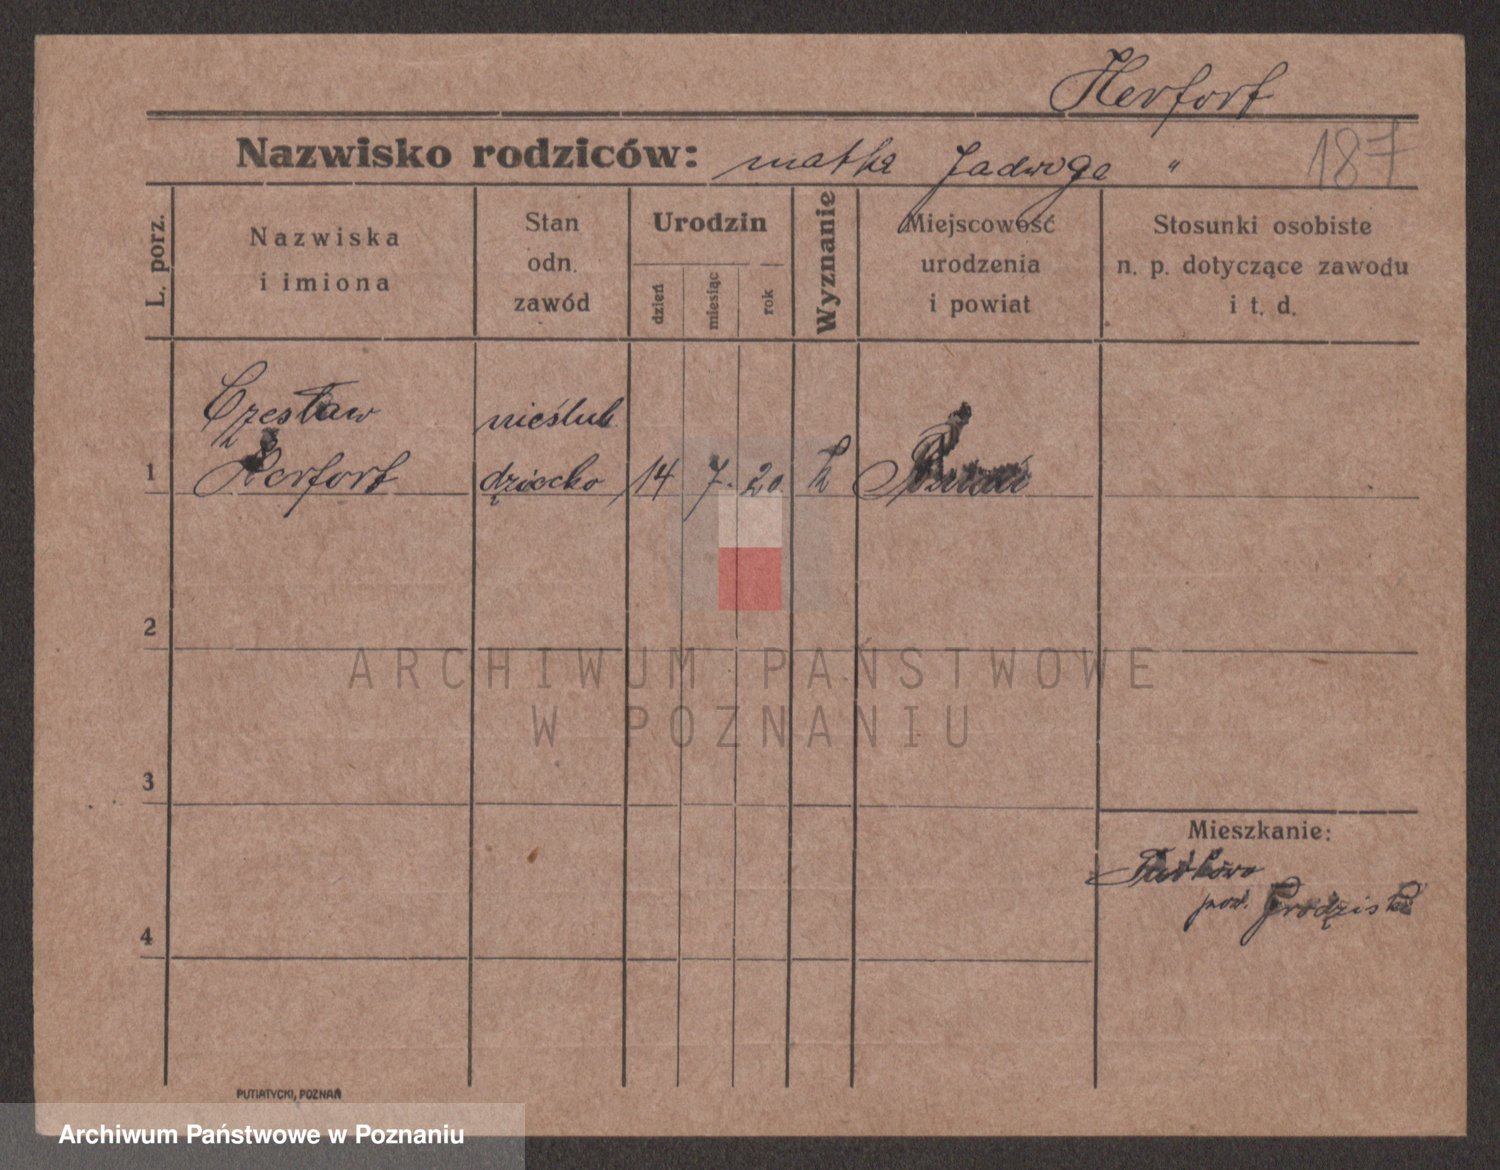 Herfort
Nazwisko rodziców: matka Jadwiga "
187
L. porz.
Nazwiska
i imiona
Stan
odn.
zawód
Urodzin
dzień
miesiąc
rok
Wyznanie
Miejscowość
urodzenia
i powiat
Stosunki osobiste
n. p. dotyczące zawodu
i t. d.
Czesław
nieślub
1
Herfort
dziecko
14
7.
20
k
2
ARCHIWUM PAŃSTWOWE
W POZNANIU
3
Mieszkanie:
pow. Grodzisk
4
PUTIATYCKI, POZNAŃ
Archiwum Państwowe w Poznaniu